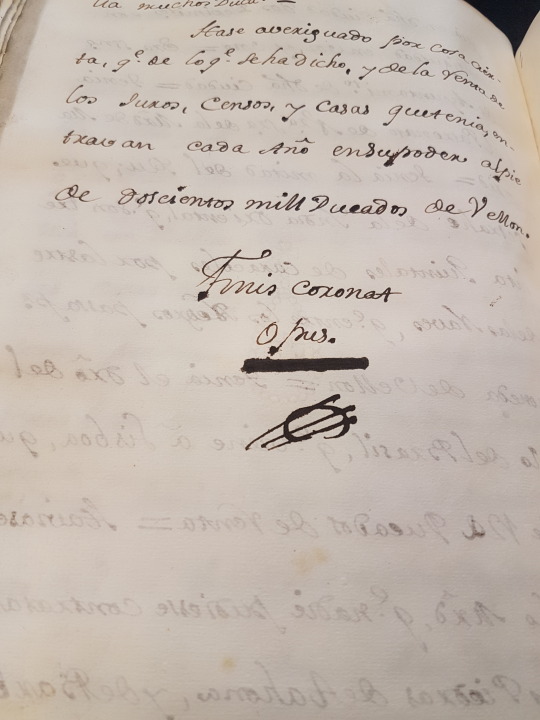 muchos Duca. =
Hase averiguado por Cosa Cier-
ta, q.e de lo q.e se ha dicho, y de la Venta de
los Juros, Censos, y Casas que tenia, en-
travan cada Año en su poder al pie
de doscientos mill Ducados de Vellon.
Finis coronat
Opus.